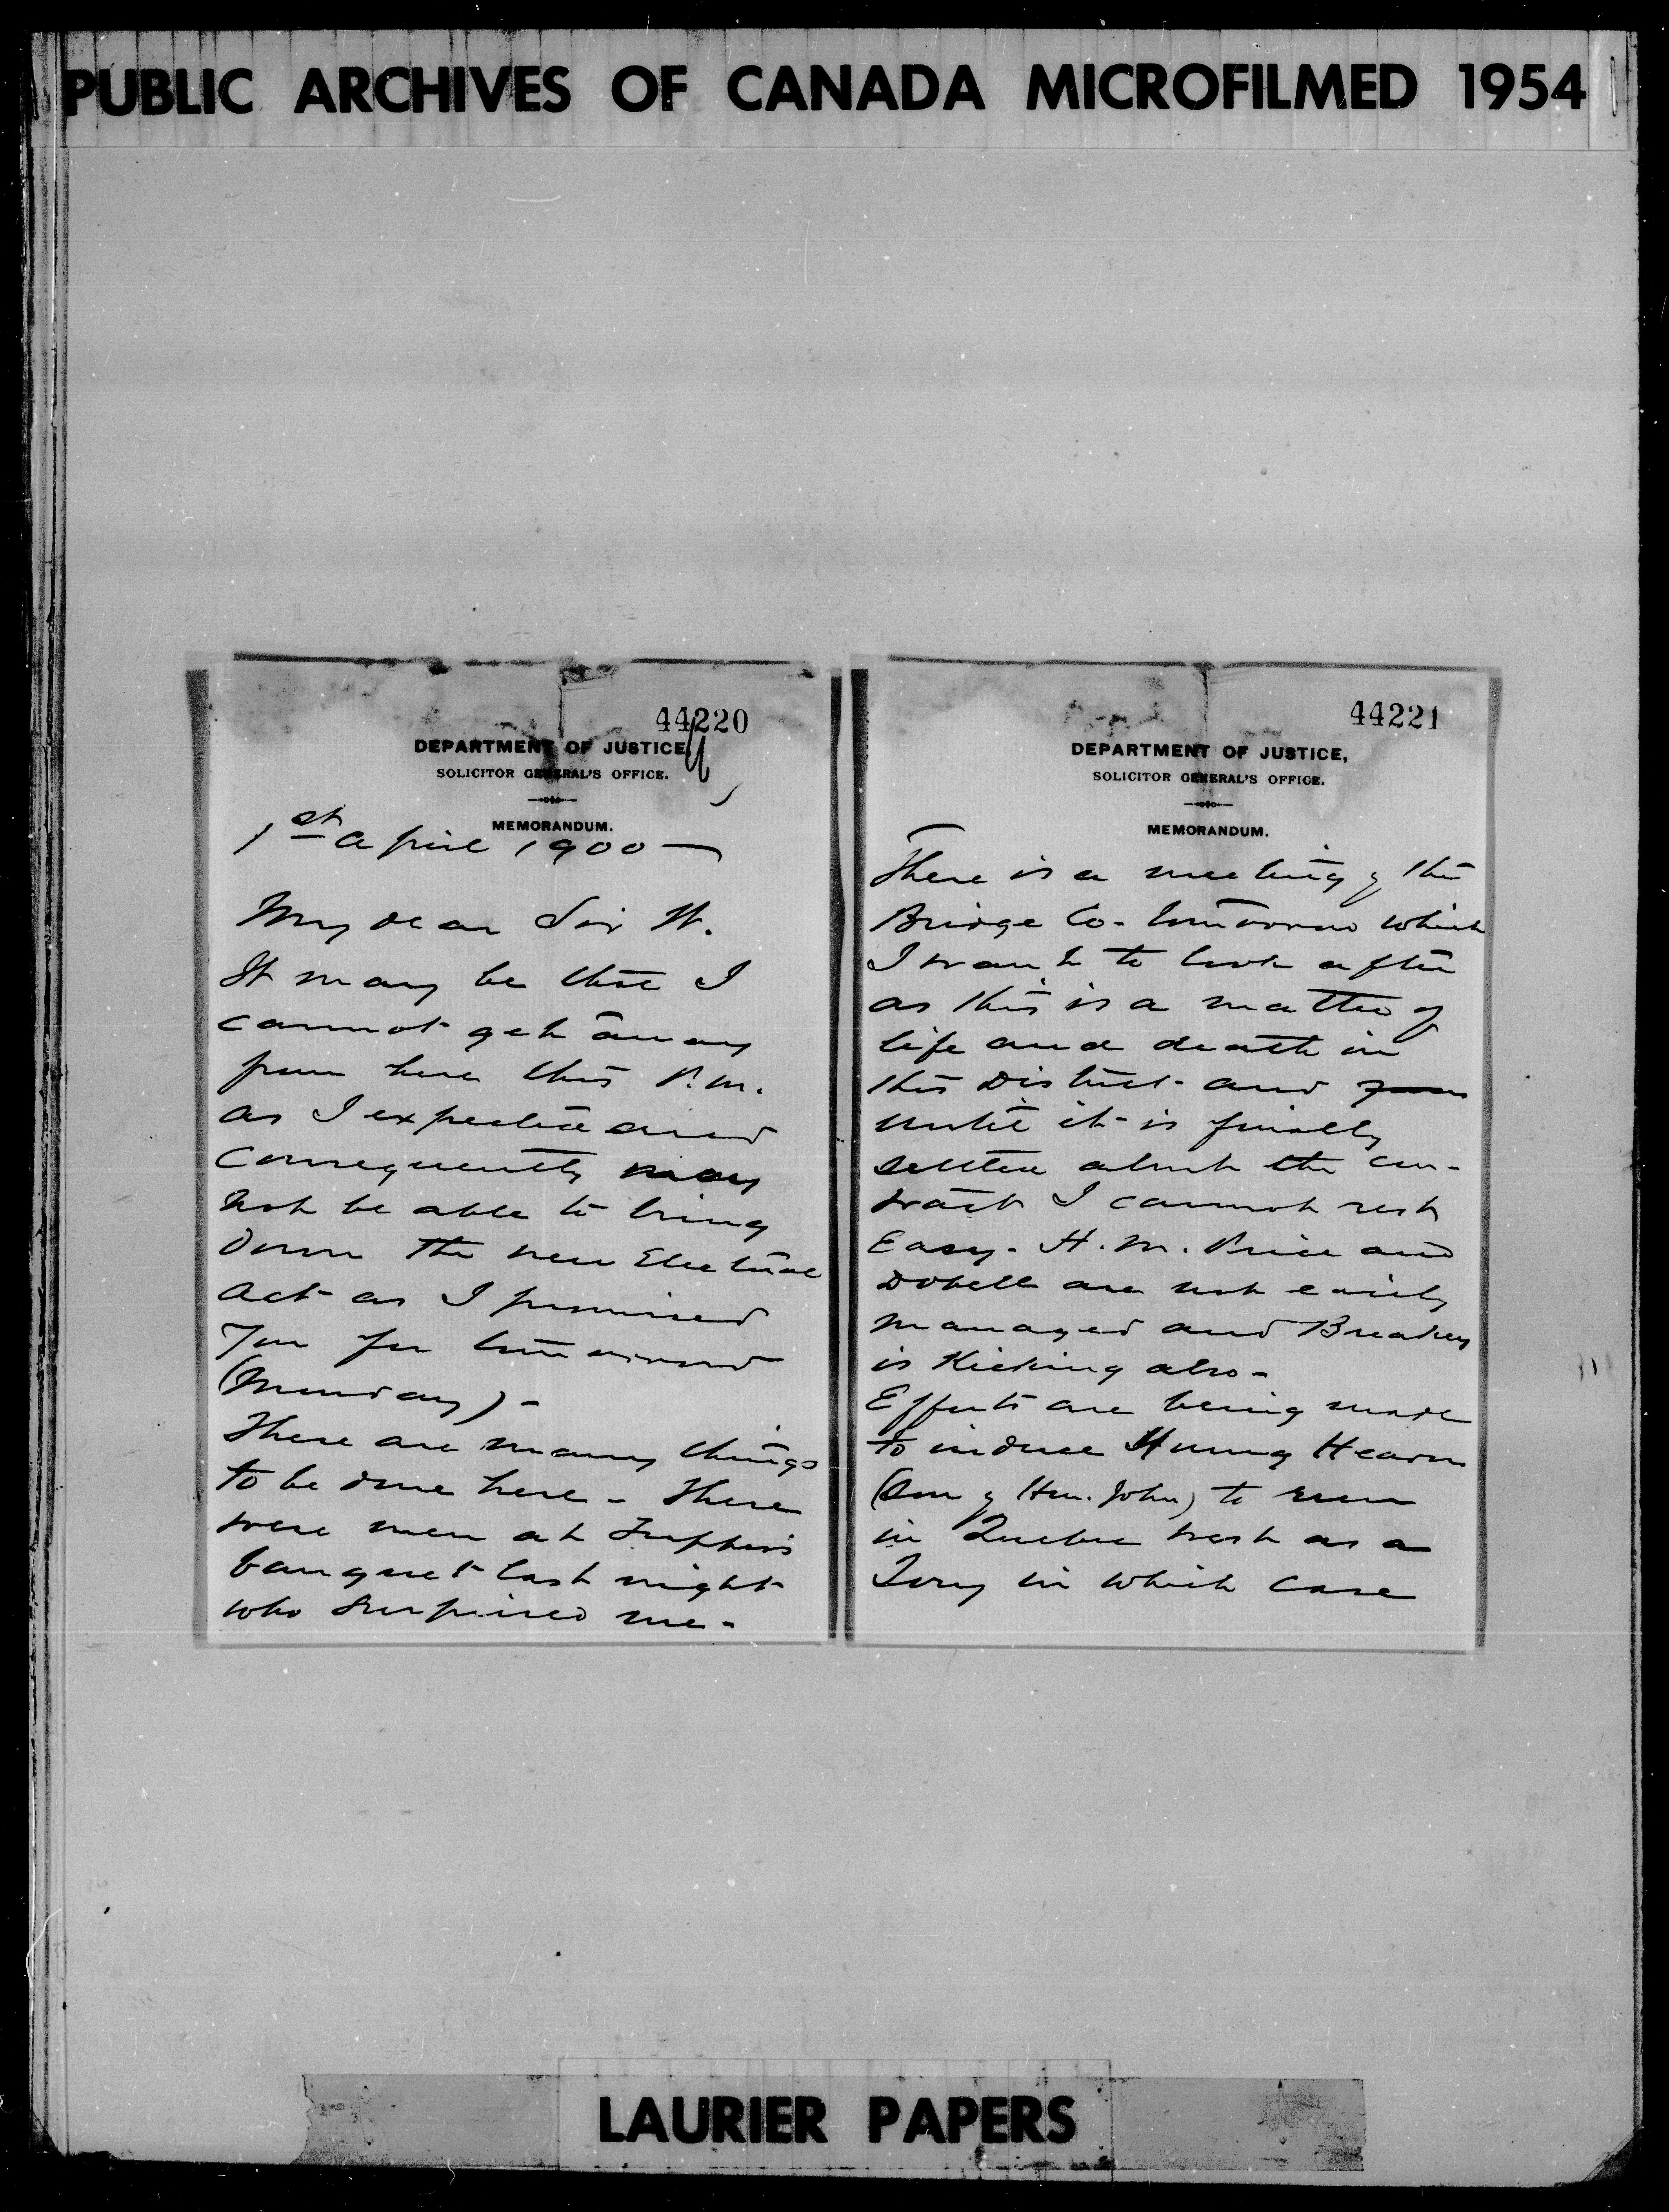 PUBLIC ARCHIVES OF CANADA MICROFILMED 1954
44220
DEPARTMENT OF JUSTICE,
SOLICITOR GENERAL'S OFFICE.
MEMORANDUM.
1st April 1900
My dear Sir W.
It may be that I
cannot get away
from here this P.M.
as I expected and
consequently may
not be able to bring
down the new Electoral
Act as I promised
you for tomorrow
(Monday) -
There are many things
to be done here - There
were men at Tupper's
banquet last night
who surprised me -
44221
DEPARTMENT OF JUSTICE,
SOLICITOR GENERAL'S OFFICE.
MEMORANDUM.
There is a meeting of the
Bridge Co. tomorrow which
I want to look after
as this is a matter of
life and death in
this District and
until it is finally
settled about the con-
tract I cannot rest
Easy. H. M. Price and
Dobell are not easily
managed and Breakey
is Kicking also -
Efforts are being made
to induce Hearn
(Son of Hon. John) to run
in Quebec West as a
Tory in which case
LAURIER PAPERS